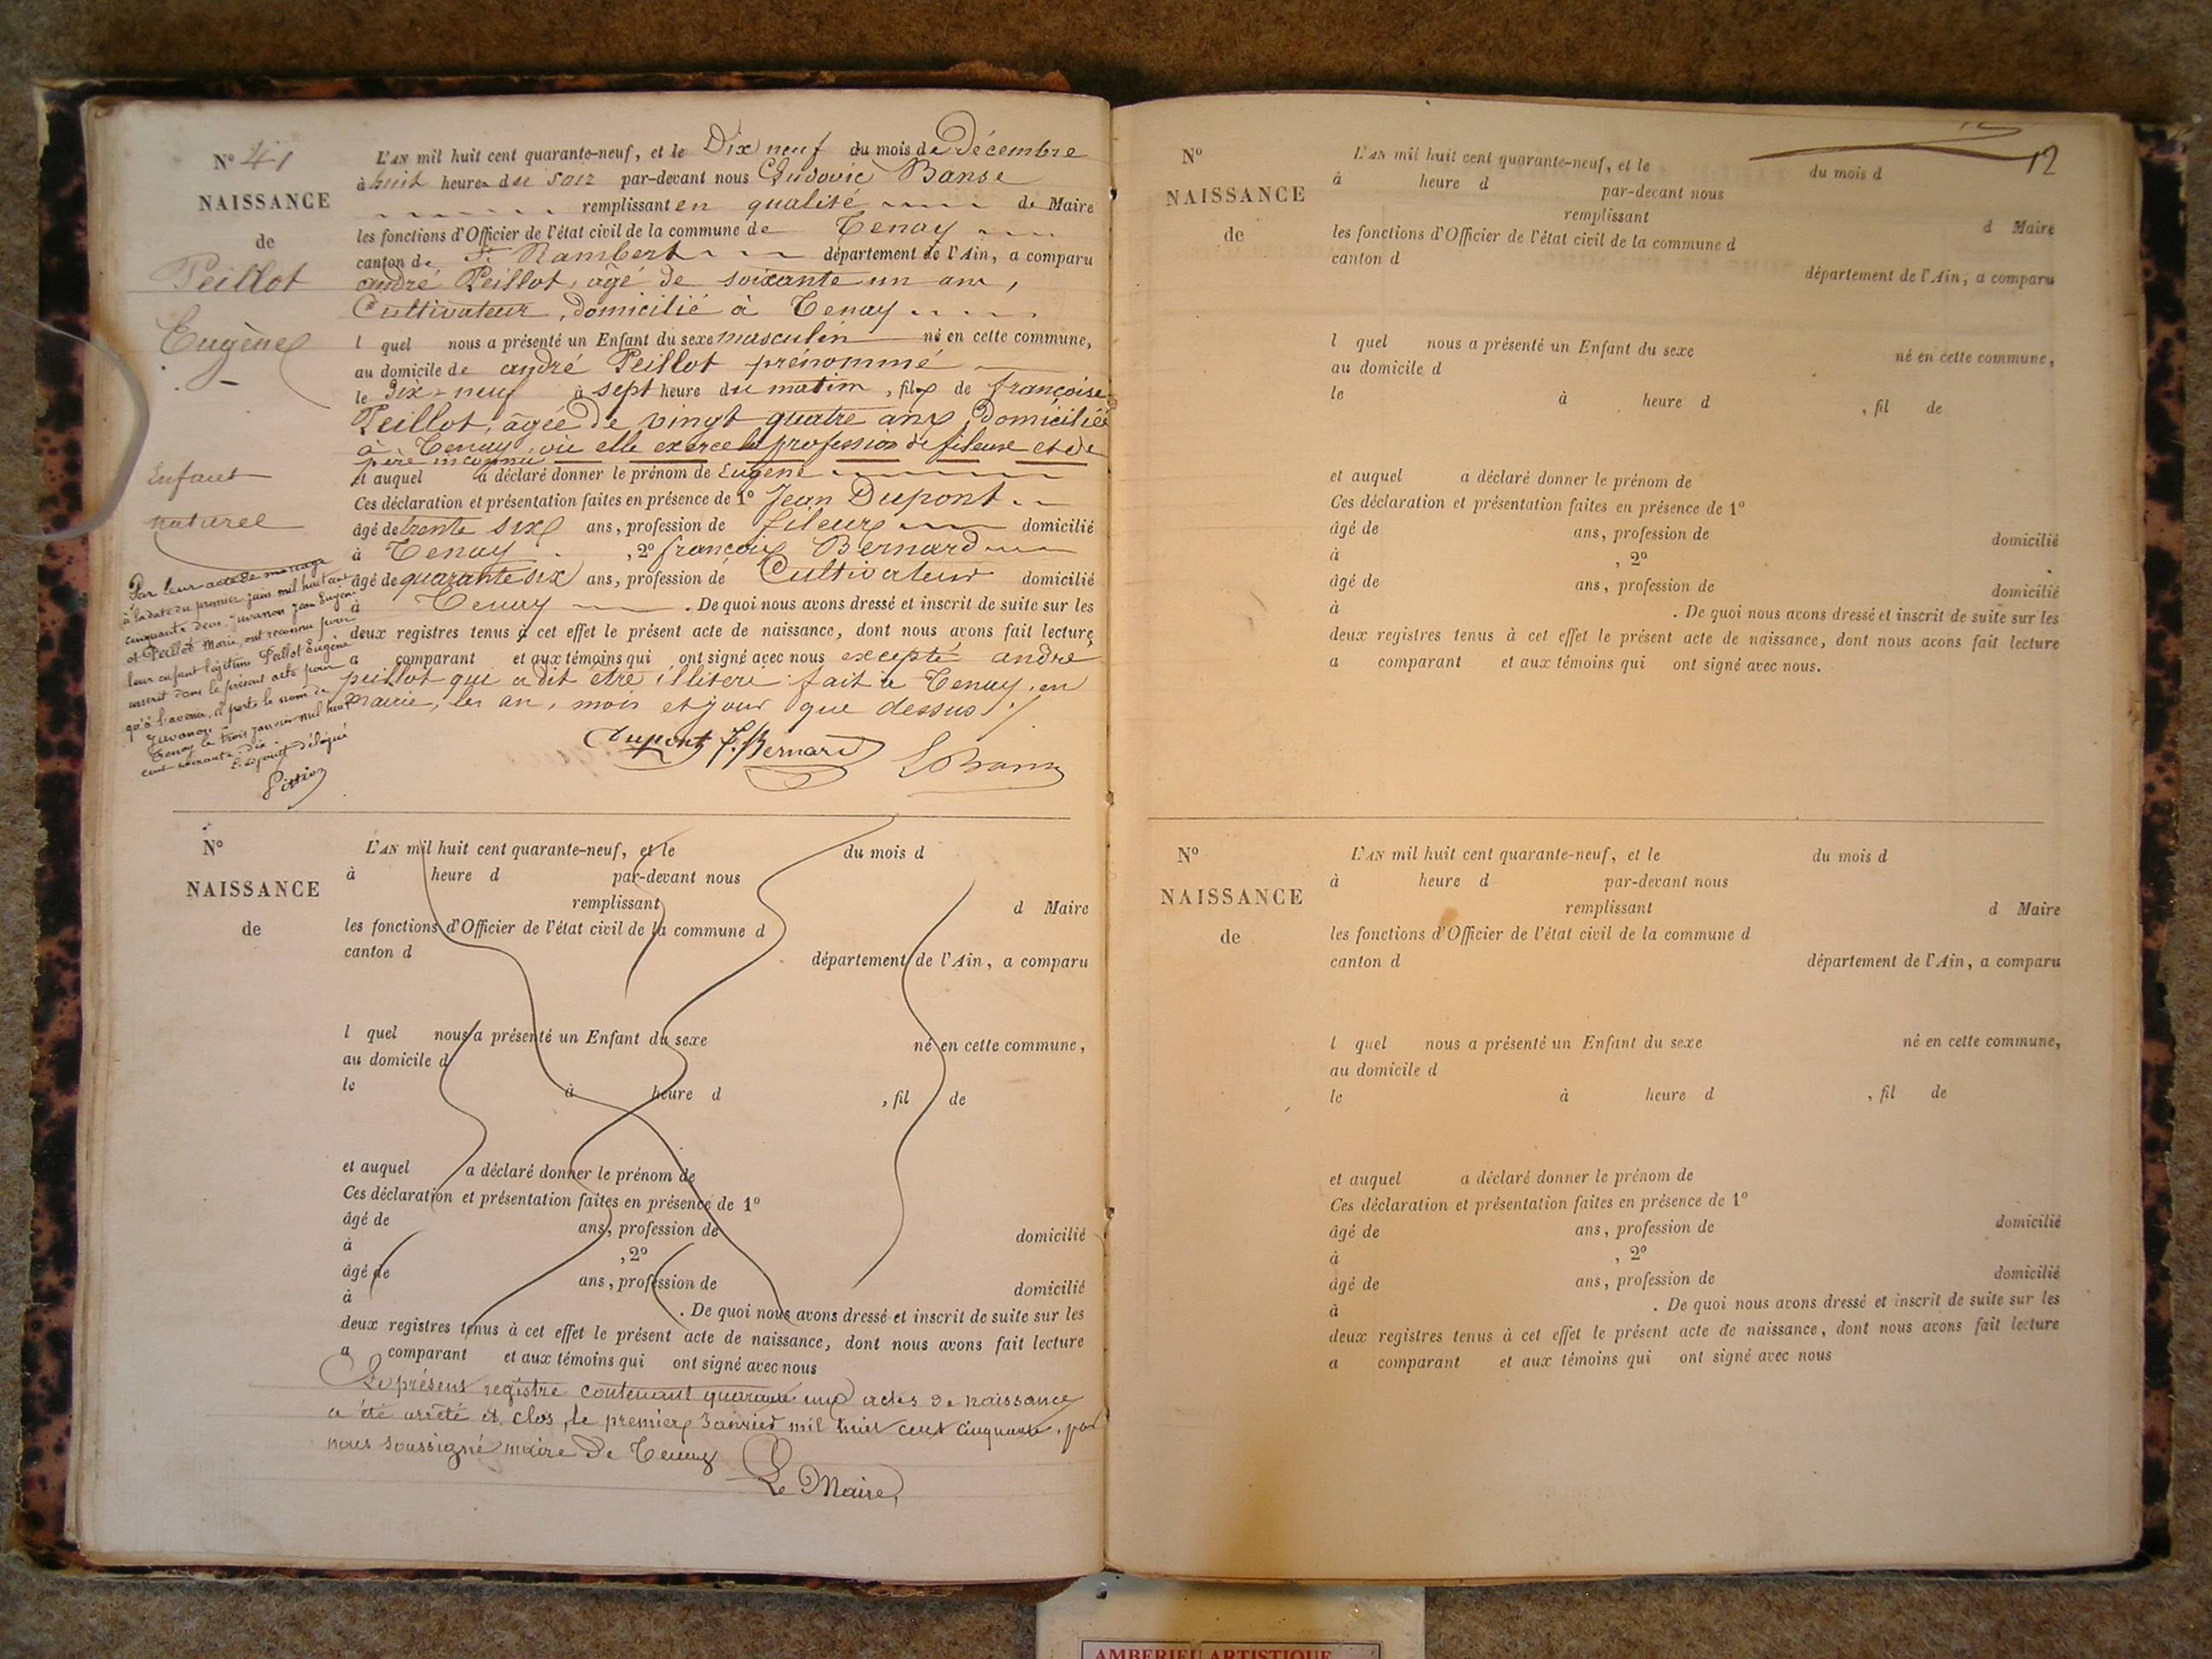 N° 41
NAISSANCE
de
Peillot
Eugène
Enfant
naturel
Par leur acte de mariage
à la date du premier juin mil huit cent
cinquante deux Juvanon Jean Eugène
et Peillot Marie, ont reconnu pour
leur enfant légitime Peillot Eugène
inscrit dans le présent acte pour
qu'à l'avenir, il porte le nom de
Juvanon
Tenay le trois janvier mil huit
cent soixante-dix
L'adjoint délégué
L'AN mil huit cent quarante-neuf, et le Dix neuf du mois de Décembre
à huit heures du soir par-devant nous Ludovic Banse
remplissant en qualité de Maire
les fonctions d'Officier de l'état civil de la commune de Tenay
canton de St Rambert département de l'Ain, a comparu
andré Peillot, âgé de soixante un ans,
Cultivateur, domicilié à Tenay
l quel nous a présenté un Enfant du sexe masculin né en cette commune,
au domicile de andré Peillot prénommé
le Dix-neuf à sept heure du matin, fils de françoise
Peillot, âgée de vingt quatre ans, Domiciliée
à Tenay où elle exerce la profession de fileuse et de
père inconnu
et auquel a déclaré donner le prénom de Eugène
Ces déclaration et présentation faites en présence de 1° Jean Dupont
âgé de trente six ans, profession de fileur domicilié
à Tenay, 2° françois Bernard
âgé de quarante six ans, profession de Cultivateur domicilié
à Tenay. De quoi nous avons dressé et inscrit de suite sur les
deux registres tenus à cet effet le présent acte de naissance, dont nous avons fait lecture
a comparant et aux témoins qui ont signé avec nous excepté andré
peillot qui a dit être illiteré fait à Tenay, en
mairie, les an, mois et jour que dessus
Dupont F. Bernard
N°
NAISSANCE
de
L'AN mil huit cent quarante-neuf, et le du mois d
à heure d par-devant nous
remplissant d Maire
les fonctions d'Officier de l'état civil de la commune d
canton d département de l'Ain, a comparu
l quel nous a présenté un Enfant du sexe né en cette commune,
au domicile d
le à heure d , fil de
et auquel a déclaré donner le prénom de
Ces déclaration et présentation faites en présence de 1°
âgé de ans, profession de domicilié
à , 2°
âgé de ans, profession de domicilié
à . De quoi nous avons dressé et inscrit de suite sur les
deux registres tenus à cet effet le présent acte de naissance, dont nous avons fait lecture
a comparant et aux témoins qui ont signé avec nous
Le présent registre contenant quarante un actes de naissance
a été arrêté et clos, le premier Janvier mil huit cent cinquante, par
nous soussigné maire de Tenay
Le Maire,
12
N°
NAISSANCE
de
L'AN mil huit cent quarante-neuf, et le du mois d
à heure d par-devant nous
remplissant d Maire
les fonctions d'Officier de l'état civil de la commune d
canton d département de l'Ain, a comparu
l quel nous a présenté un Enfant du sexe né en cette commune,
au domicile d
le à heure d , fil de
et auquel a déclaré donner le prénom de
Ces déclaration et présentation faites en présence de 1°
âgé de ans, profession de domicilié
à , 2°
âgé de ans, profession de domicilié
à . De quoi nous avons dressé et inscrit de suite sur les
deux registres tenus à cet effet le présent acte de naissance, dont nous avons fait lecture
a comparant et aux témoins qui ont signé avec nous.
N°
NAISSANCE
de
L'AN mil huit cent quarante-neuf, et le du mois d
à heure d par-devant nous
remplissant d Maire
les fonctions d'Officier de l'état civil de la commune d
canton d département de l'Ain, a comparu
l quel nous a présenté un Enfant du sexe né en cette commune,
au domicile d
le à heure d , fil de
et auquel a déclaré donner le prénom de
Ces déclaration et présentation faites en présence de 1°
âgé de ans, profession de domicilié
à , 2°
âgé de ans, profession de domicilié
à . De quoi nous avons dressé et inscrit de suite sur les
deux registres tenus à cet effet le présent acte de naissance, dont nous avons fait lecture
a comparant et aux témoins qui ont signé avec nous
AMBERIEU ARTISTIQUE